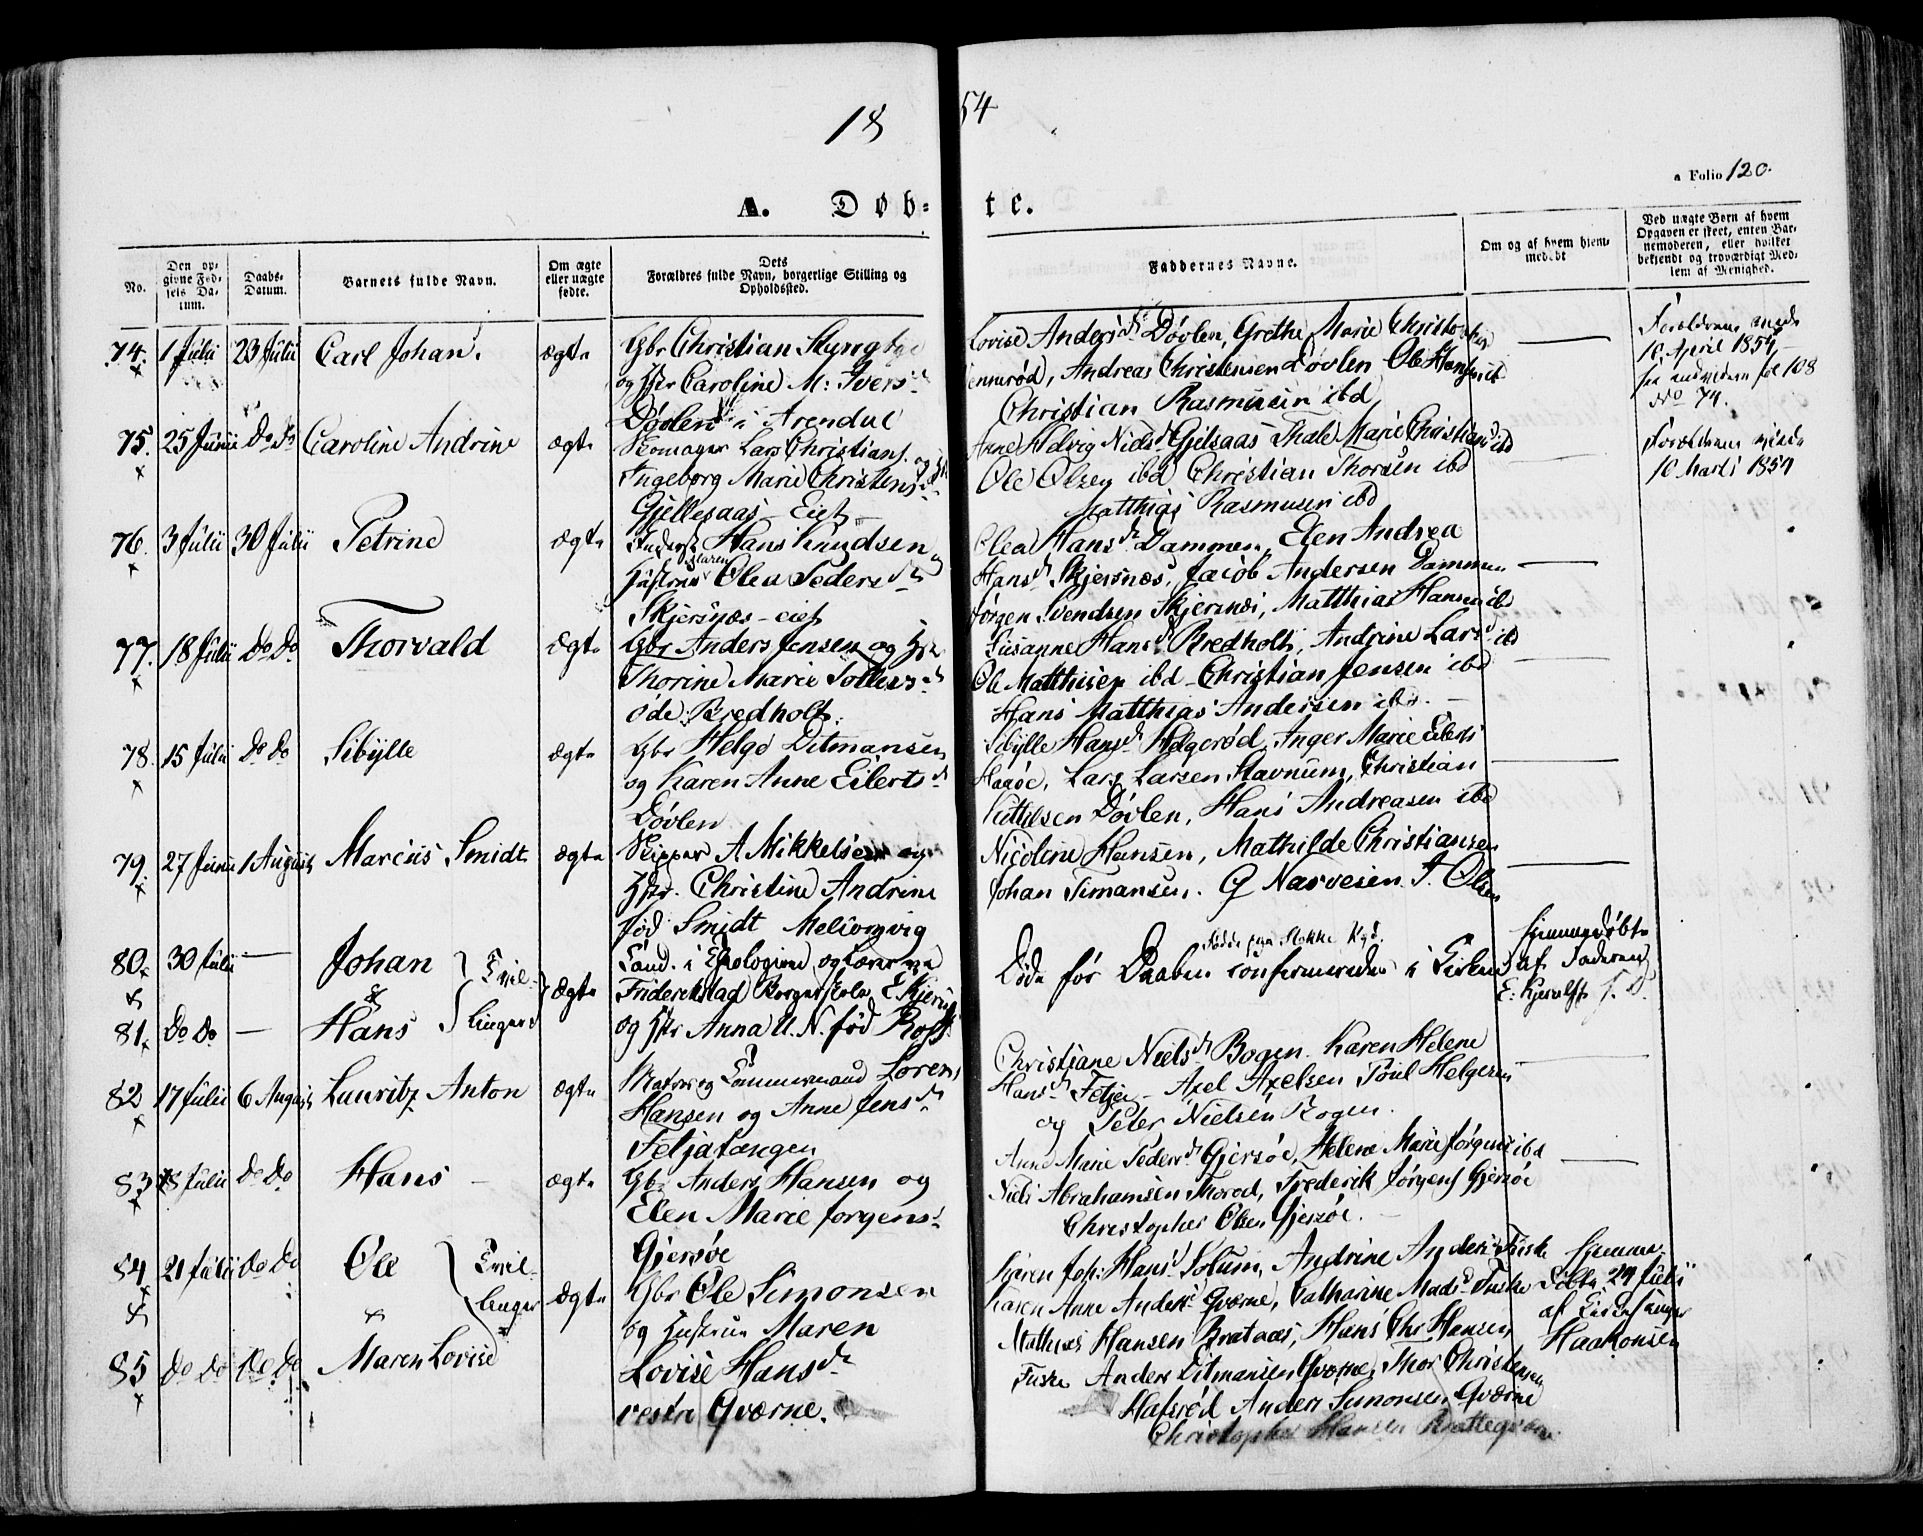 1854
a Folio 120.
A. Døbte.
No.
Den opgivne Fødsels Datum.
Daabs-Datum.
Barnets fulde Navn.
Om ægte eller uægte fødte.
Dets Forældres fulde Navn, borgerlige Stilling og Opholdssted.
Faddernes Navne.
Om og af hvem hjemmedøbt
Ved uægte Børn af hvem Opgaven er skeet, enten Barnemoderen, eller hvilket bekjendt og troværdigt Medlem af Menighed.
74. 1 Julii 23 Julii Carl Johan. ægte Gbr Christian
og Hstr Caroline M: Ivers d.
Døvlen i Arendal
Lovise Anders d. Døvlen, Grethe Marie
Andreas Christensen Døvlen Ole
Christian Rasmusen ibd
Forældrene
10 April 1854
fol 108
No 74.
75. 25 Junii Do Do Caroline Andrine ægte Skomager Lars Christians. og
Ingeborg Marie Christens d.
Gjellesaas - Eiet
Anne Helvig Niels d. Gjelsaas Thale Marie Christians d. ibd
Ole Olsen ibd Christian Thorsen ibd
Matthias Rasmusen ibd
Forældrene
10 Marts 1854
76. 3 Julii 30 Julii Petrine ægte Hans Knudsen og
Hustrue Maren Olea Peders d.
Skjersnæs - eiet
Olea Hans d. Dammen, Elen Andrea
Hans d. Skjersnæs, Jacob Andersen Dammen
Jørgen Svendsen Skjersnæs, Matthias Hansen ibd
77. 18 Julii Do Do Thorvald ægte Gbr Anders Jensen og Hstr
Thorine Marie d.
øde: Bredholt.
Susanne Hans d. Bredholt, Andrine Lars d. ibd
Ole Matthisen ibd - Christian Jensen ibd
Hans Matthias Andersen ibd. -
78. 15 Julii Do Do Sibylle ægte Gbr Helge Ditmansen
og Karen Anne Eilerts d.
Døvlen
Sibylle Hans d. Helgerød, Anger Marie Eilerts
Haaøe, Lars Larsen Stavnum, Christian
Kittilsen Døvlen, Hans Andreasen ibd
79. 27 Junii 1 August Marcus Smidt ægte Skipper A Mikkelsen og
Hstr. Christine Andrine
fød Smidt Melsomvig
Nicoline Hansen, Mathilde Christiansen
Johan Timansen. G Narvesen. A. Olsen
80. 30 Julii — Johan Tvil- ægte Cand. i Theologien og Lærer ved
Friderikstad Borgerskole E Kjerulf
81. Do Do — Hans linger og Hstr Anna U. N. fød
Døde før Daaben confirmeredes i Kirken
Hjemmedøbte
af Faderen
E. Kjerulff
82 17 Julii 6 August Lauritz Anton ægte Matros og Tømmermand Lorens
Hansen og Anne Jens d.
Feljatangen
Christiane Niels d. Bogen. Karen Helene
Hans d. Feljen - Axel Axelsen Poul Helgesen
og Peter Nielsen Bogen.
83 18 Julii Do Do Hans - ægte Gbr Anders Hansen og
Elen Marie Jørgens d.
Gjersøe
Anne Marie Peders d. Gjersøe, Helene Marie Jørgens d. ibd
Niels Abrahamsen Thorød, Frederik Jørgens Gjersøe
Christopher Olsen Gjersøe.
84 21 Julii Do Do Ole Tvil- ægte Gbr Ole Simonsen
linger og Hustrue Maren
85 Do Do Do Do Maren Lovise Lovise Hans d.
vestre Gværne.
Hans d. Solum, Andrine Anders d. Fuske
Karen Anne Anders d. Gværne, Catharine Mads d. Fuske
Mathias Hansen Brataas, Hans Chr Hansen
Fuske Anders Ditmansen Gværne, Thor Christensen
Hafsrød Anders Simonsen Gværne
Christopher Hansen
Hjemme-
døbte 24 Julii
af Kirkesanger
Haakonsen